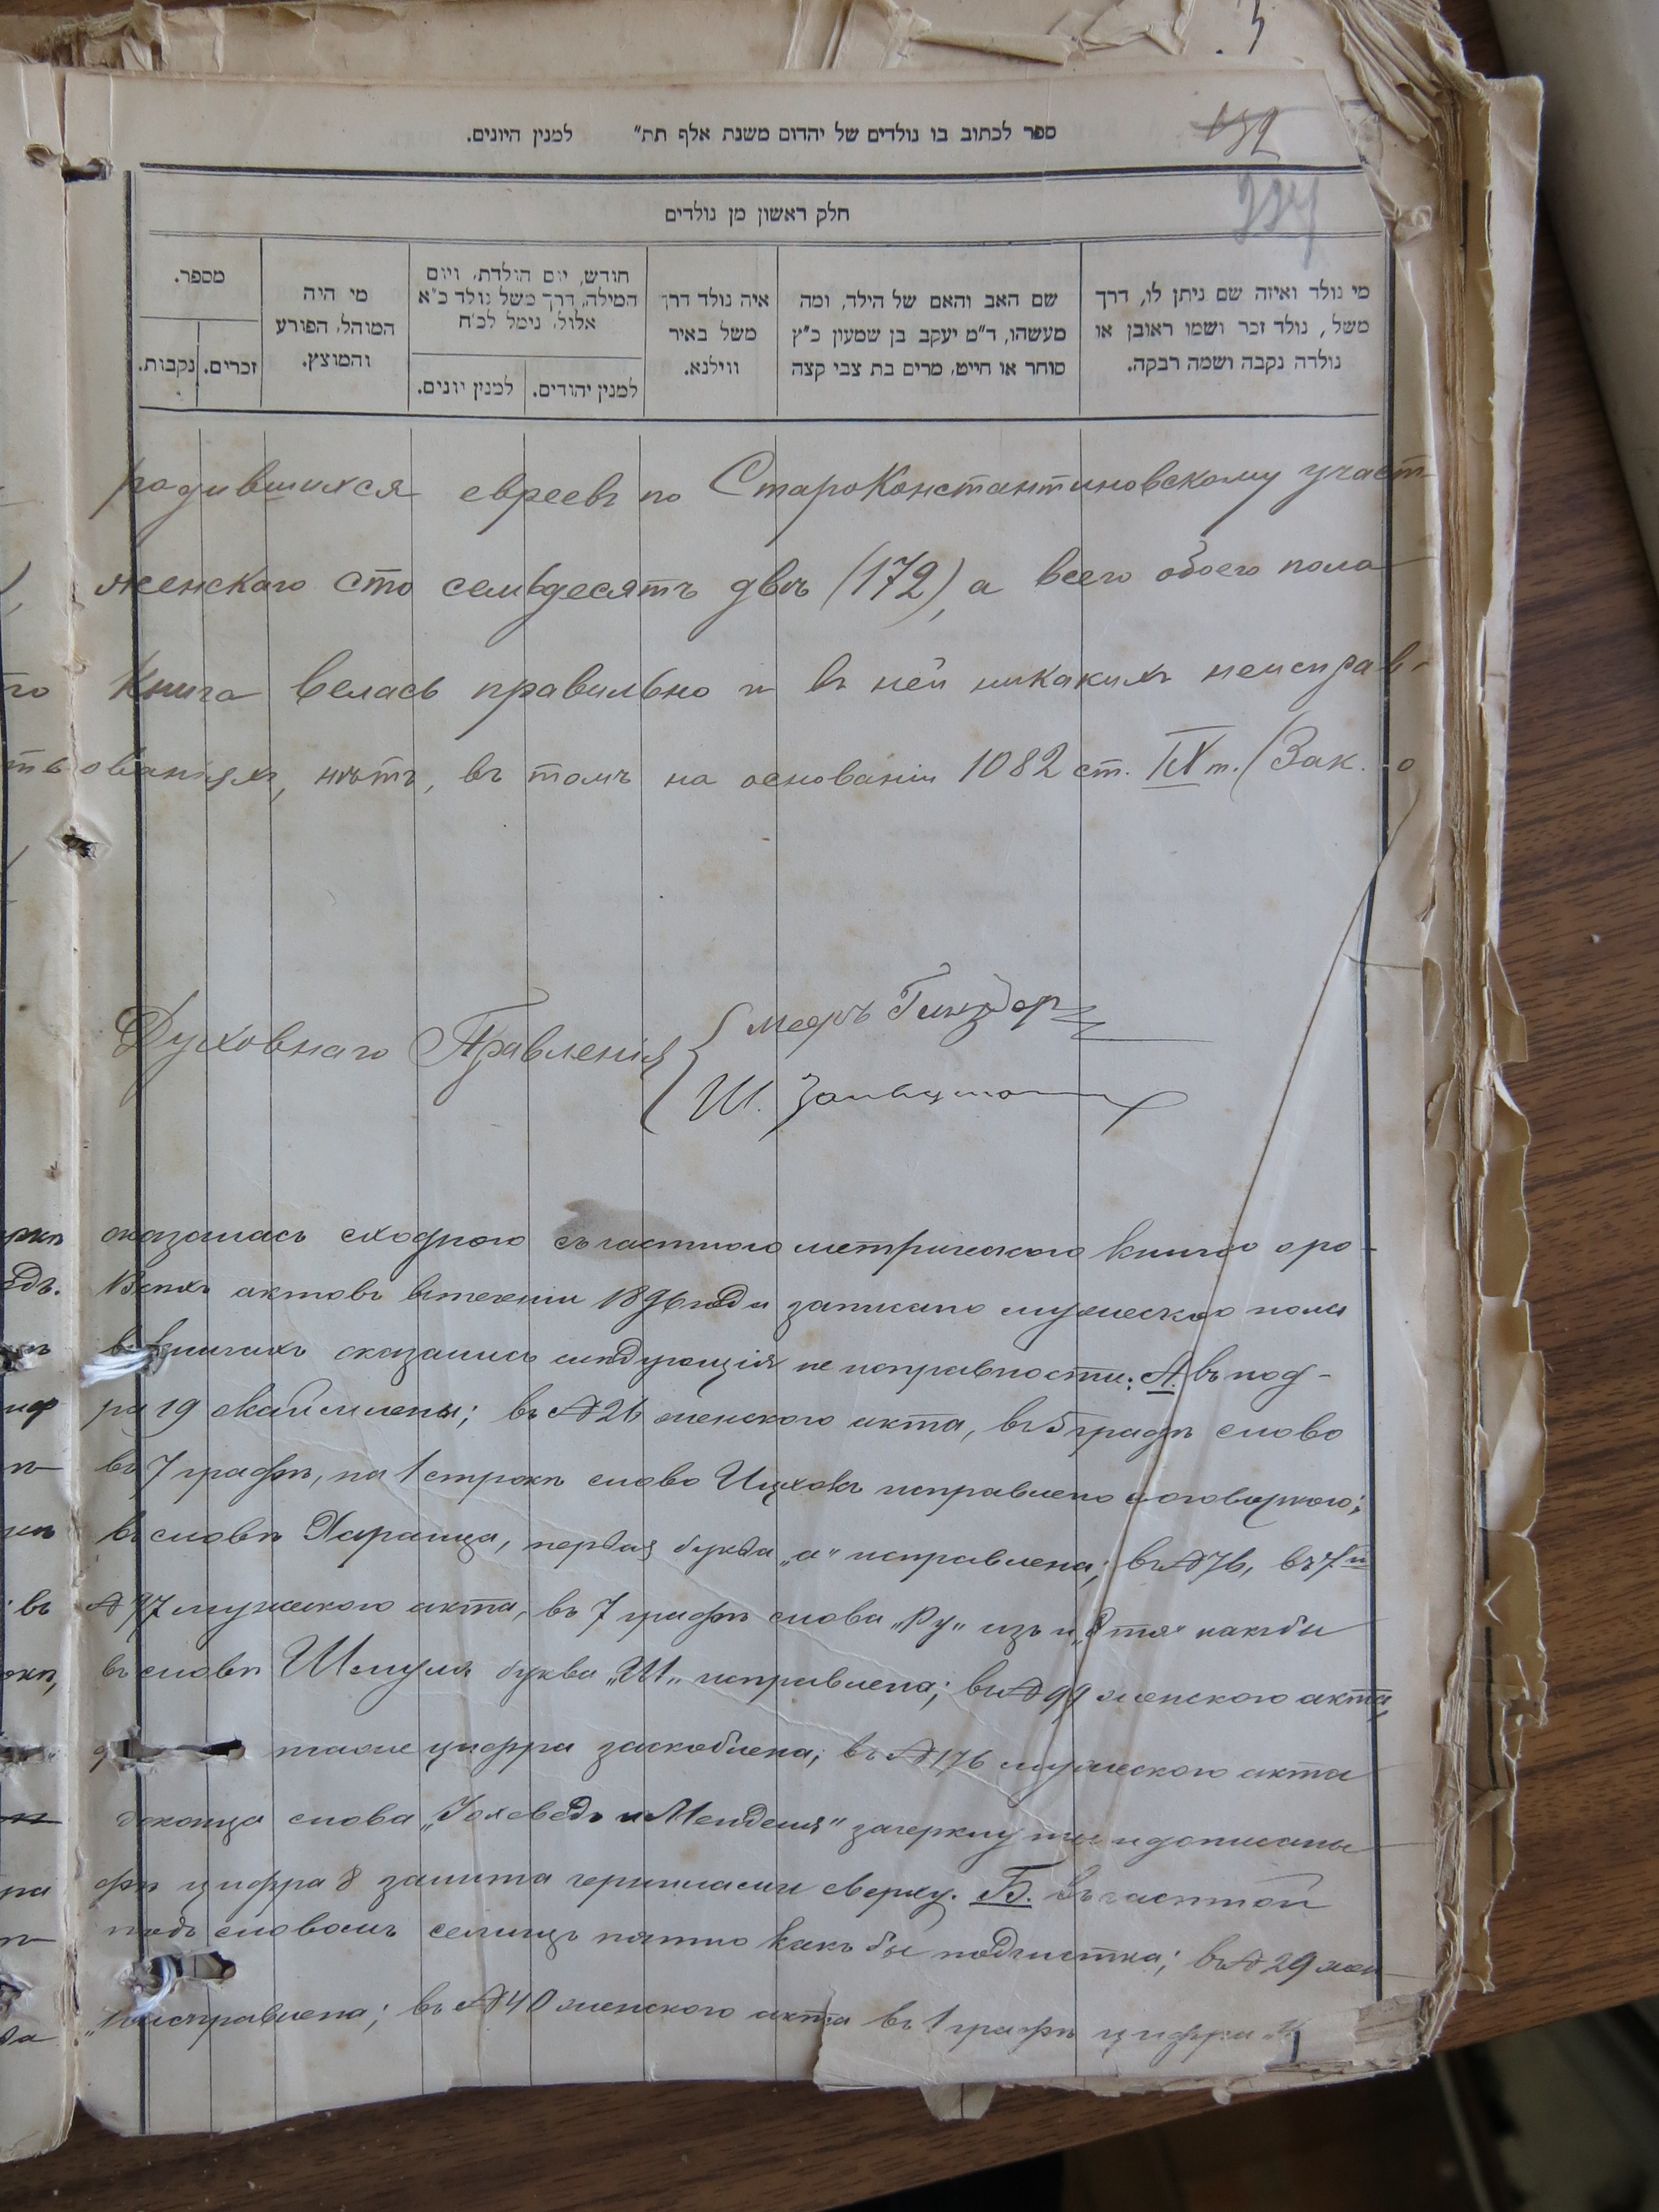 ספר לכתוב בו נולדים של יהדום משנת אלף תת״ למנין היונים.
192
חלק ראשון מן נולדים
מי נולד ואיזה שם ניתן לו, דרך משל, נולד זכר ושמו ראובן או נולדה נקבה ושמה רבקה.
שם האב והאם של הילד, ומה מעשהו, ד״מ יעקב בן שמעון כ״ץ סוחר או חייט, מרים בת צבי קצה
איה נולד דרך משל באיר ווילנא.
חודש, יום הולדת, ויום המילה, דרך משל נולד כ״א אלול, נימל לכ״ח
למנין יהודים.
למנין יונים.
מי היה המוהל, הפורע והמוצץ.
מספר.
זכרים.
נקבות.
родившихся евреевъ по Староконстантиновскому участ
женскаго сто семьдесятъ двѣ (172), а всего обоего пола
книга велась правильно и въ ней никакихъ неисправ-
нѣтъ, въ томъ на основаніи 1082 ст. IX т. (Зак. о
Духовнаго Правленія
Ш.
оказалась сходною съ частною метрическою книгою о ро-
Всѣхъ актовъ втеченіи 1896 года записано мужескаго пола
въ книгахъ оказались слѣдующія не исправности: А. въ под-
ра 19 ; въ № 26 женского акта, въ 5 графѣ слово
въ 7 графѣ, на 1 строкѣ слово Ицховъ исправлено оговоркою;
въ словѣ , первая буква „а“ исправлена; въ № 76, въ 7й
№ 97 мужеского акта, въ 7 графѣ слова „Ру“ изъ какъ бы
въ словѣ Шмуля буква „Ш“ исправлена; въ № 99 женского акта,
также цифра заскоблена; въ № 176 мужеского акта
слова „Іохеведъ и Менделя“ зачеркнуты и дописаны
фѣ цифра 8 залита чернилами сверху. Б. въ частной
подъ словомъ пятно какъ бы подчистка; въ № 29 жен
исправлена; въ № 40 женского акта въ 1 графѣ цифра